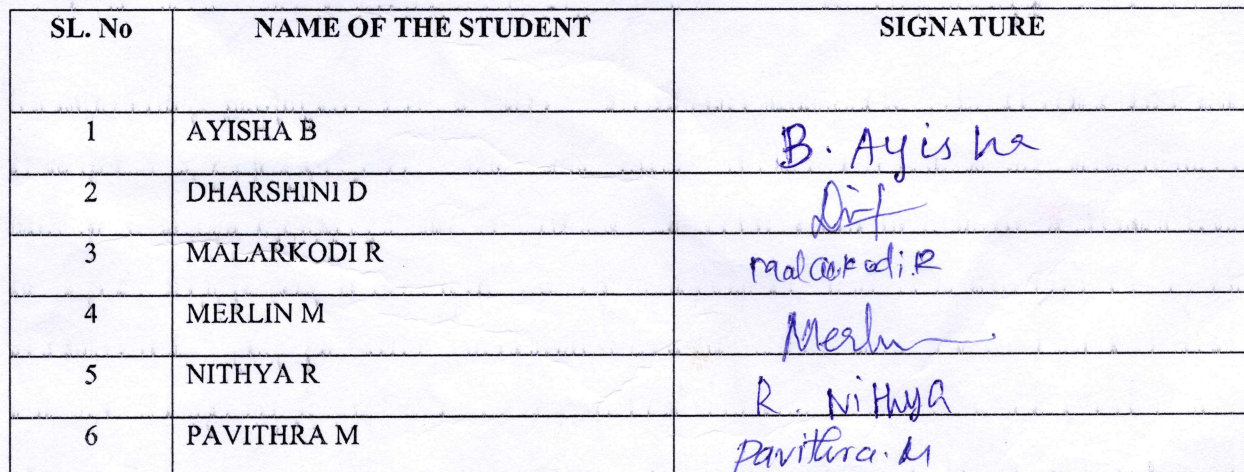 SL. No NAME OF THE STUDENT SIGNATURE
1 AYISHA B B. Ayisha
2 DHARSHINI D
3 MALARKODI R malarkodi.R
4 MERLIN M Merlin
5 NITHYA R R. Nithya
6 PAVITHRA M Pavithra.M